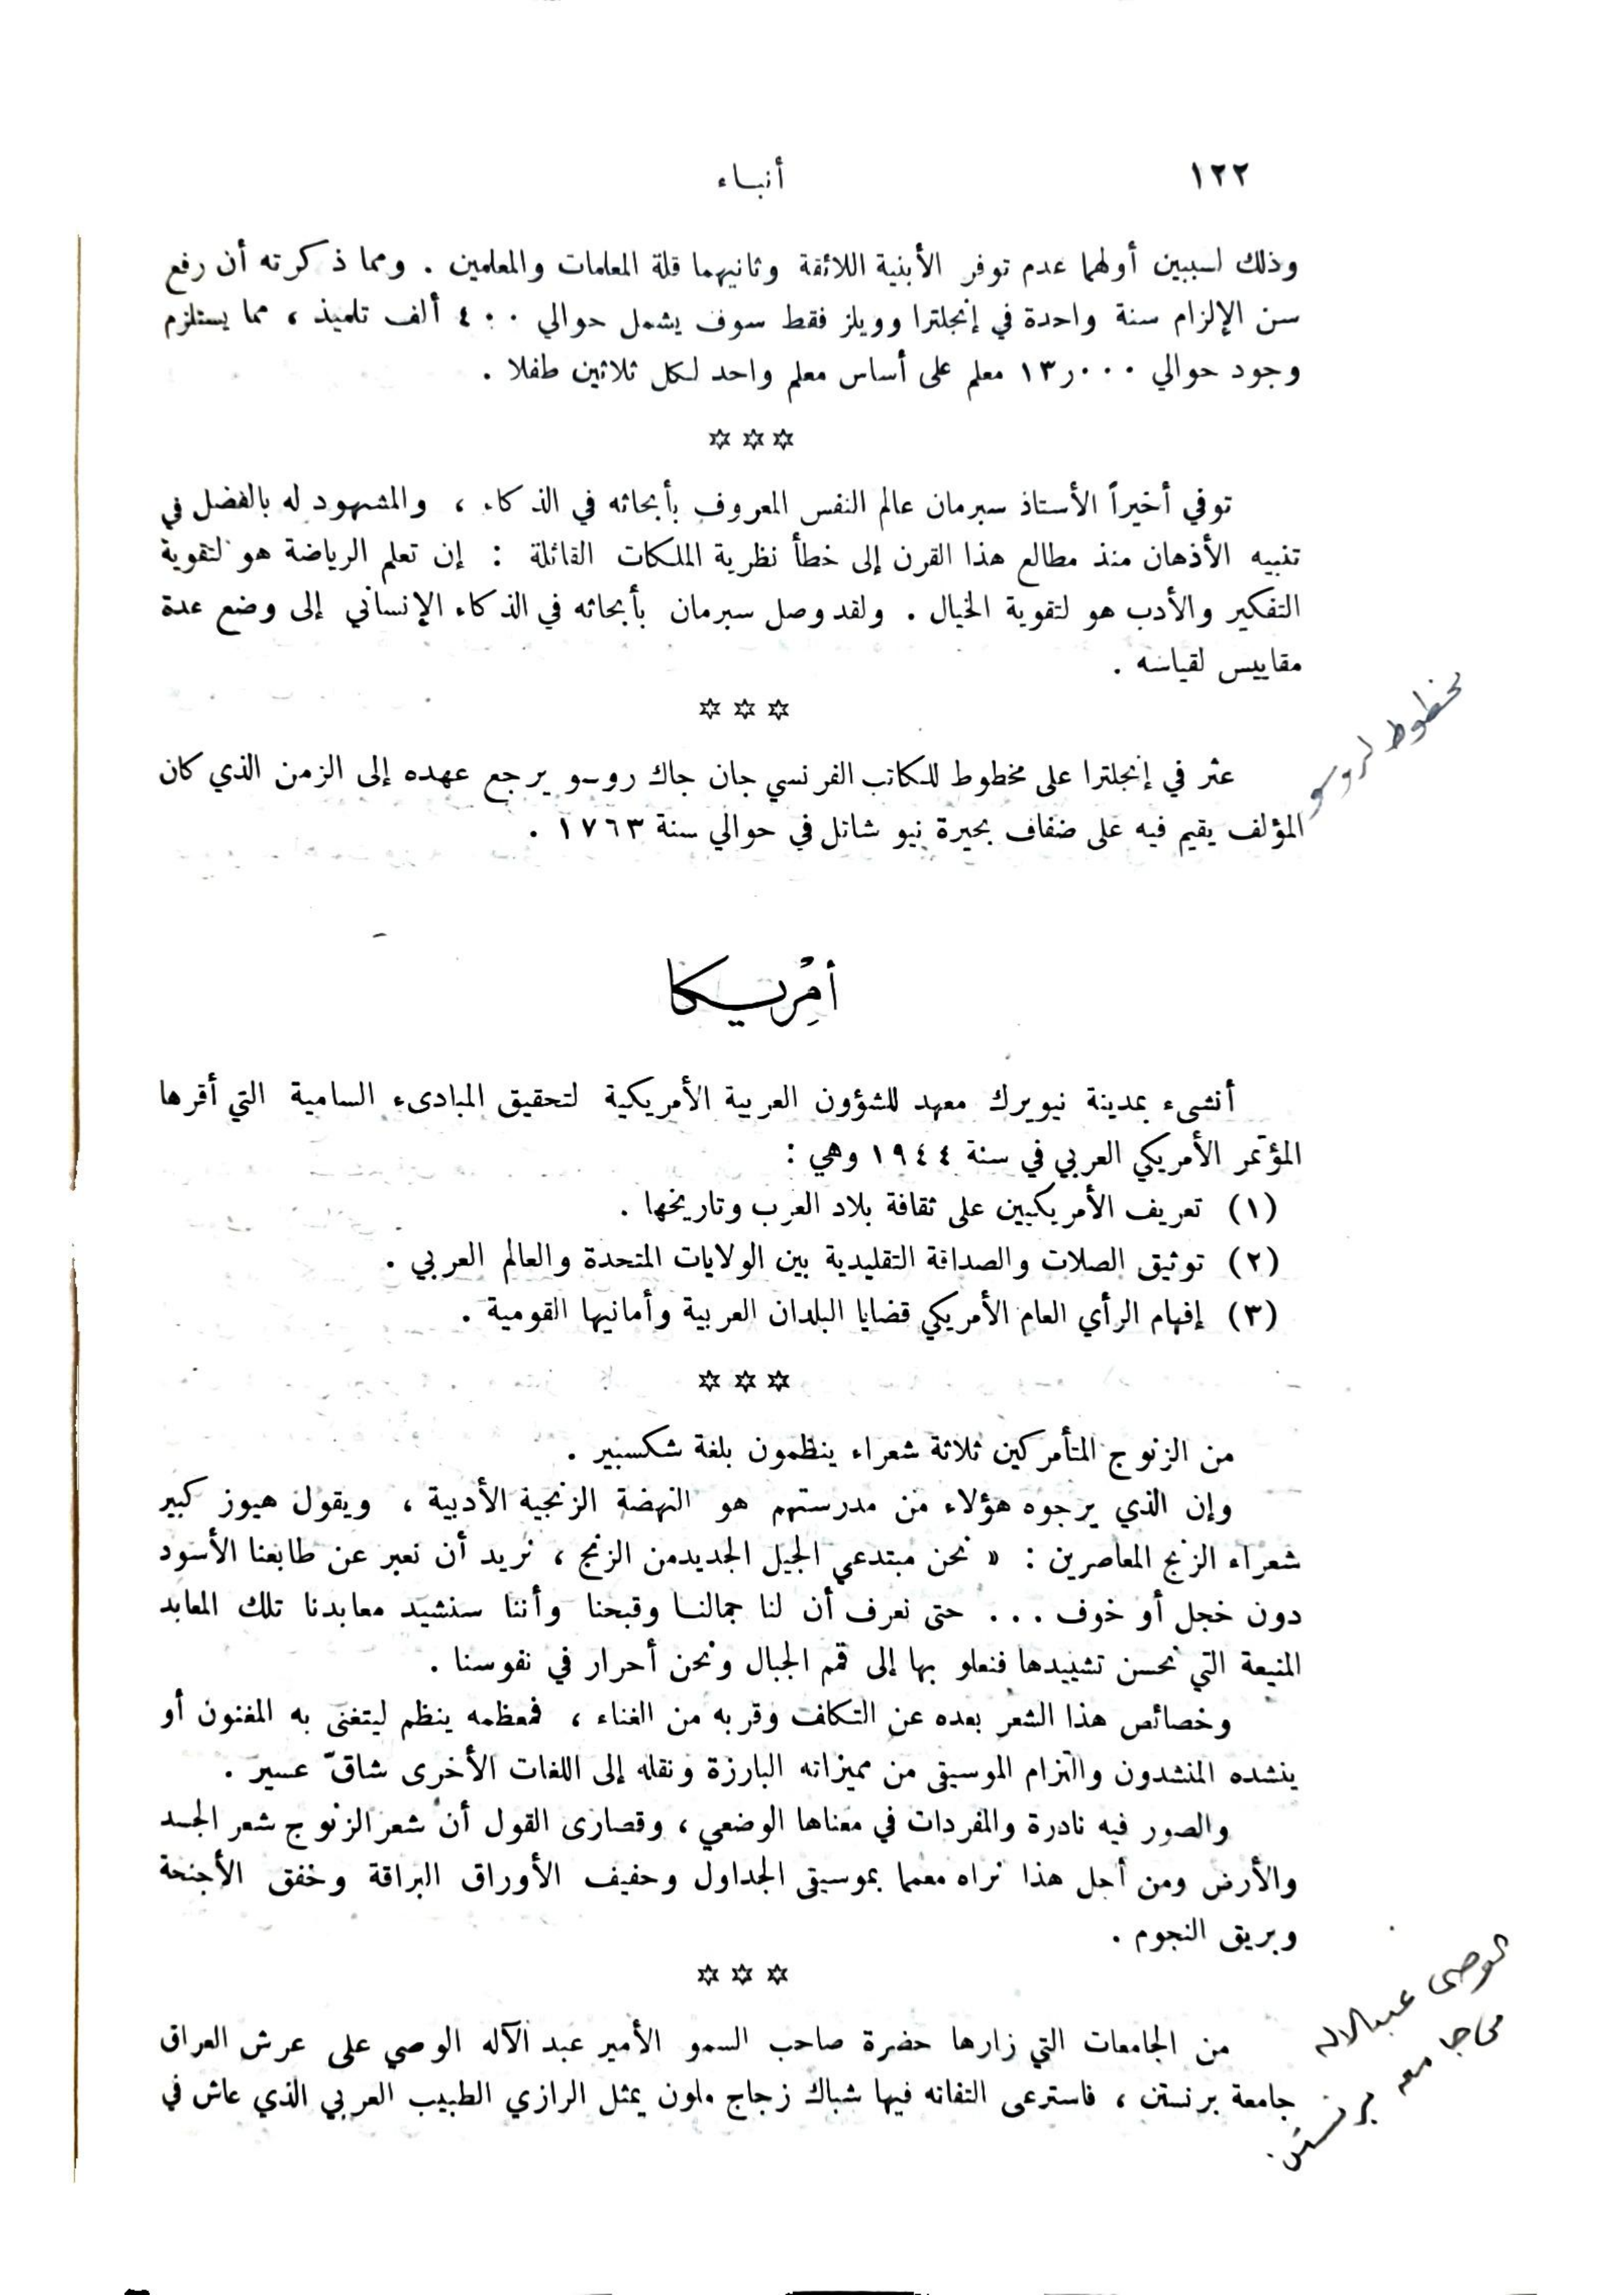 ١٢٢
أنباء
وذلك لسببين أولهما عدم توفر الأبنية اللائقة وثانيهما قلة المعلمات والمعلمين . ومما ذكرته أن رفع
سن الإلزام سنة واحدة في إنجلترا وويلز فقط سوف يشمل حوالي ٤٠٠ ألف تلميذ ، مما يستلزم
وجود حوالي ١٣ر٠٠٠ معلم على أساس معلم واحد لكل ثلاثين طفلا .
✡ ✡ ✡
توفي أخيراً الأستاذ سبرمان عالم النفس المعروف بأبحاثه في الذكاء ، والمشهود له بالفضل في
تنبيه الأذهان منذ مطالع هذا القرن إلى خطأ نظرية الملكات القائلة : إن تعلم الرياضة هو لتقوية
التفكير والأدب هو لتقوية الخيال . ولقد وصل سبرمان بأبحاثه في الذكاء الإنساني إلى وضع عدة
مقاييس لقياسه .
✡ ✡ ✡
مخطوط لروسو
عثر في إنجلترا على مخطوط للكاتب الفرنسي جان جاك روسو يرجع عهده إلى الزمن الذي كان
المؤلف يقيم فيه على ضفاف بحيرة نيو شاتل في حوالي سنة ١٧٦٣ .
أمْرِيكا
أنشىء بمدينة نيويرك معهد للشؤون العربية الأمريكية لتحقيق المبادىء السامية التي أقرها
المؤتمر الأمريكي العربي في سنة ١٩٤٤ وهي :
(١) تعريف الأمريكيين على ثقافة بلاد العرب وتاريخها .
(٢) توثيق الصلات والصداقة التقليدية بين الولايات المتحدة والعالم العربي .
(٣) إفهام الرأي العام الأمريكي قضايا البلدان العربية وأمانيها القومية .
✡ ✡ ✡
من الزنوج المتأمركين ثلاثة شعراء ينظمون بلغة شكسبير .
وإن الذي يرجوه هؤلاء من مدرستهم هو النهضة الزنجية الأدبية ، ويقول هيوز كبير
شعراء الزنج المعاصرين : « نحن مبتدعي الجيل الجديدمن الزنج ، نريد أن نعبر عن طابعنا الأسود
دون خجل أو خوف ... حتى نعرف أن لنا جمالنا وقبحنا وأننا سنشيد معابدنا تلك المعابد
المنيعة التي نحسن تشييدها فنعلو بها إلى قمم الجبال ونحن أحرار في نفوسنا .
وخصائص هذا الشعر بعده عن التكلف وقربه من الغناء ، فمعظمه ينظم ليتغنى به المغنون أو
ينشده المنشدون والتزام الموسيقى من مميزاته البارزة ونقله إلى اللغات الأخرى شاقّ عسير .
والصور فيه نادرة والمفردات في معناها الوضعي ، وقصارى القول أن شعر الزنوج شعر الجسد
والأرض ومن أجل هذا نراه مفعما بموسيقى الجداول وحفيف الأوراق البراقة وخفق الأجنحة
وبريق النجوم .
✡ ✡ ✡
الوصي عبدالاله
في جامعه برنستن
من الجامعات التي زارها حضرة صاحب السمو الأمير عبد الآله الوصي على عرش العراق
جامعة برنستن ، فاسترعى التفاته فيها شباك زجاج ملون يمثل الرازي الطبيب العربي الذي عاش في